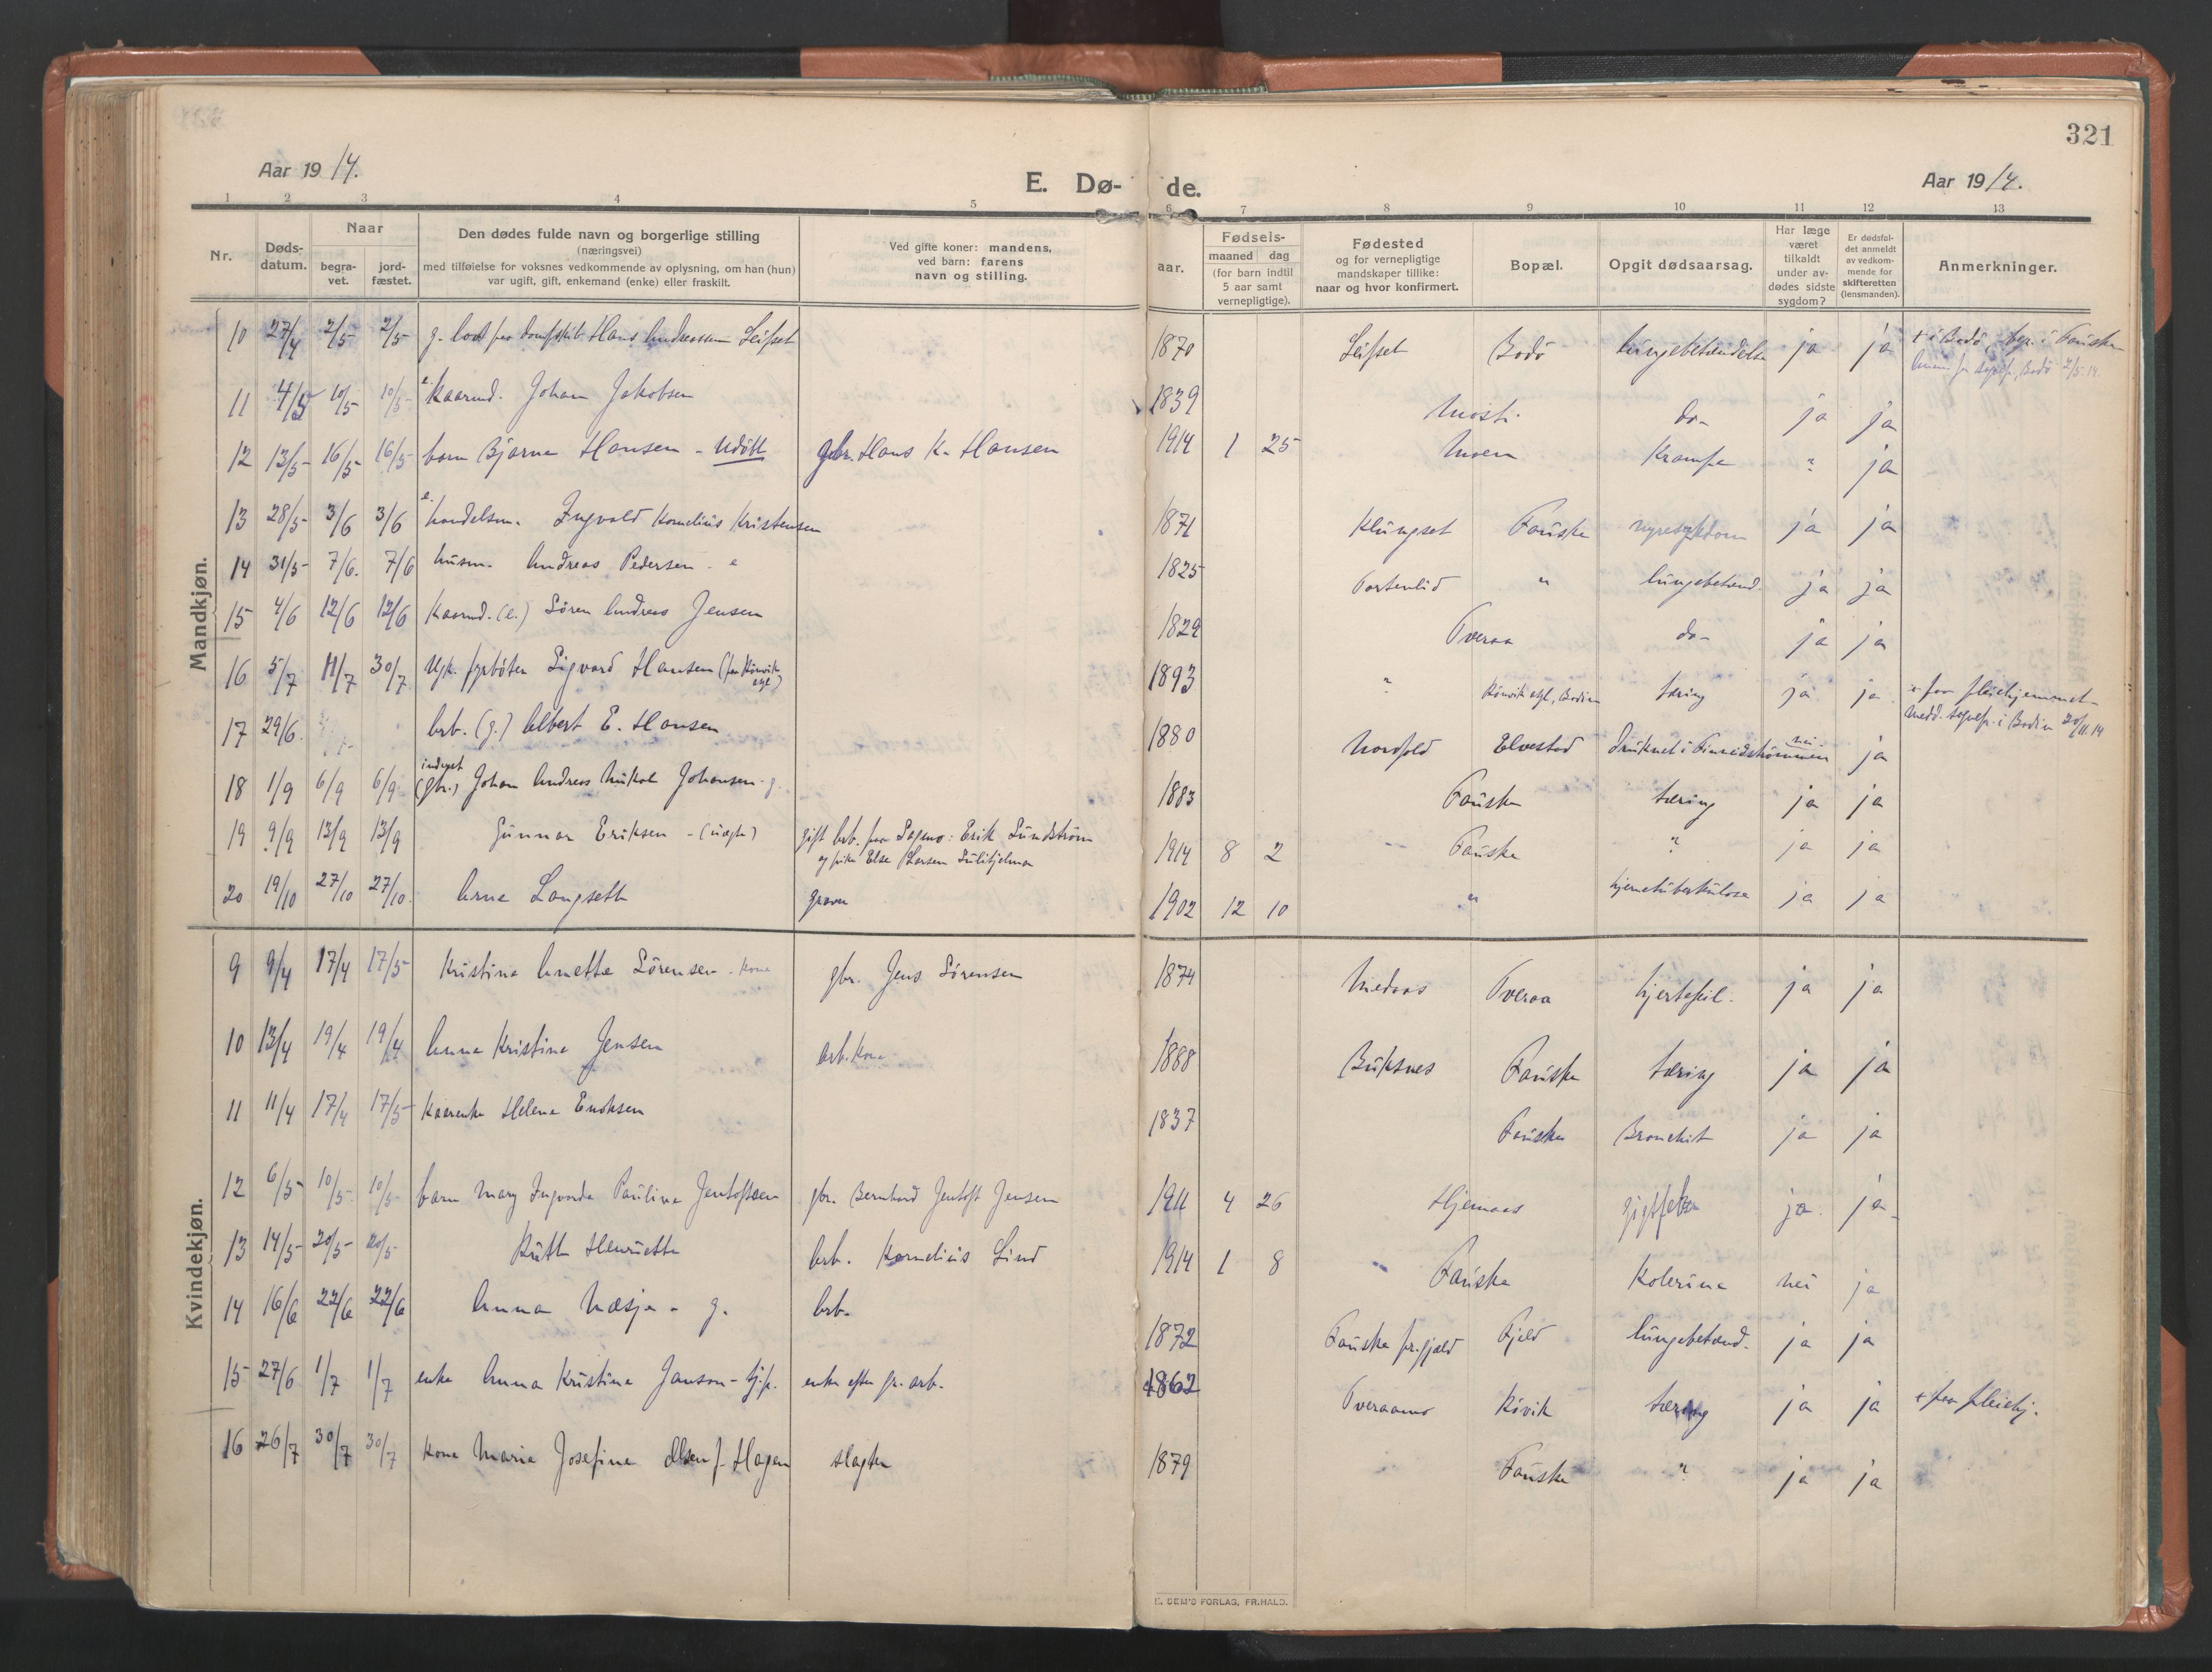 321
Aar 1914.
E. Dø- de.
Aar 1914.
1 2 3 4 5 6 7 8 9 10 11 12 13
Nr.
Døds-datum.
Naar
begra-vet.
jord-fæstet.
Den dødes fulde navn og borgerlige stilling
(næringsvei)
med tilføielse for voksnes vedkommende av oplysning, om han (hun)
var ugift, gift, enkemand (enke) eller fraskilt.
Ved gifte koner: mandens,
ved barn: farens
navn og stilling.
aar.
Fødsels-
maaned dag
(for barn indtil
5 aar samt
vernepligtige).
Fødested
og for vernepligtige
mandskaper tillike:
naar og hvor konfirmert.
Bopæl.
Opgit dødsaarsag.
Har læge
været
tilkaldt
under av-
dødes sidste
sygdom?
Er dødsfal-
det anmeldt
av vedkom-
mende for
skifteretten
(lensmanden).
Anmerkninger.
Mandkjøn.
10 27/4 2/5 2/5 g. Hans Andreassen Leifset 1870 Leifset Bodö lungebetændelse ja ja + i Bodö, begr. i Fauske
2/5.14.
11 4/5 10/5 10/5 e. kaarmd. Johan Jakobsen 1839 do- ja ja
12 13/5 16/5 16/5 barn Bjarne Hansen - udöbt gbr. Hans K. Hansen 1914 1 25 Moen Krampe " ja
13 28/5 3/6 3/6 e. handelsm. Ingvald Kornelius Kristensen 1871 Klungset Fauske nyresykdom ja ja
14 31/5 7/6. 7/6 husm. Andreas Pedersen - e 1825 " lungebetænd. ja ja
15 4/6 12/6 12/6 kaarmd. (e.) Sören Andreas Jensen 1829 Tveraa do- ja ja
16 5/7 11/7 30/7 Ugk. fyrböter Sigvard Hansen 1893 " Rönvik asyl, Bodin tæring ja ja + paa pleiehjemmet
medd. sognepr. i Bodin 20/11.14
17 29/6. arb. (g.) Albert E. Hansen 1880 Nordfold Elvestad Druknet i Finneidströmmen nei ja
18 1/9 6/9 6/9 (gbr.) Johan Andreas Mikal Johansen - g. 1883 Fauske tæring ja ja
19 9/9 13/9 13/9 Gunnar Eriksen - (uægte) gift arb. paa Sagmo: Erik Lundström
og pike Else Larsen Sulitjelma 1914 8 2 Fauske " ja ja
20 19/10 27/10 27/10. Arne Langseth graver 1902 12 10 " hjernetuberkulose ja ja
Kvindekjøn.
9 9/4 17/4 17/5 Kristine Anette Sörensen - kone gbr. Jens Sörensen 1874 Medaas Tveraa hjertefeil. ja ja
10 13/4 19/4 19/4 Anna Kristine Jensen arb. kone 1888 Buksnes Fauske tæring ja ja
11 11/4 17/4 17/5 kaarenke Helene Enoksen 1837 Fauske Bronchit ja ja
12 6/5 10/5 10/5 barn Mary Ingvarda Pauline Jentoftsen gbr. Bernhard Jentoft Jensen 1911 4 26 Hjemaas gigtfeber ja. ja-
13 14/5 20/5 20/5 Ruth Henriette arb. Kornelius Lind 1914 1 8 Fauske Kolerine nei ja
14 16/6 22/6 22/6 Anna Næsje - g. arb. 1872 Fauske Fjeld lungebetænd. ja ja
15 27/6 1/7 1/7 enke Anna Kristine Janson - enke efter arb. 1862 Tveraamo Rövik tæring ja ja + paa pleiehj.
16 26/7 30/7 30/7 kone Marie Josefine Olsen f. Hagen slagter 1879 Fauske " ja ja
E. SEM'S FORLAG, FR.HALD.